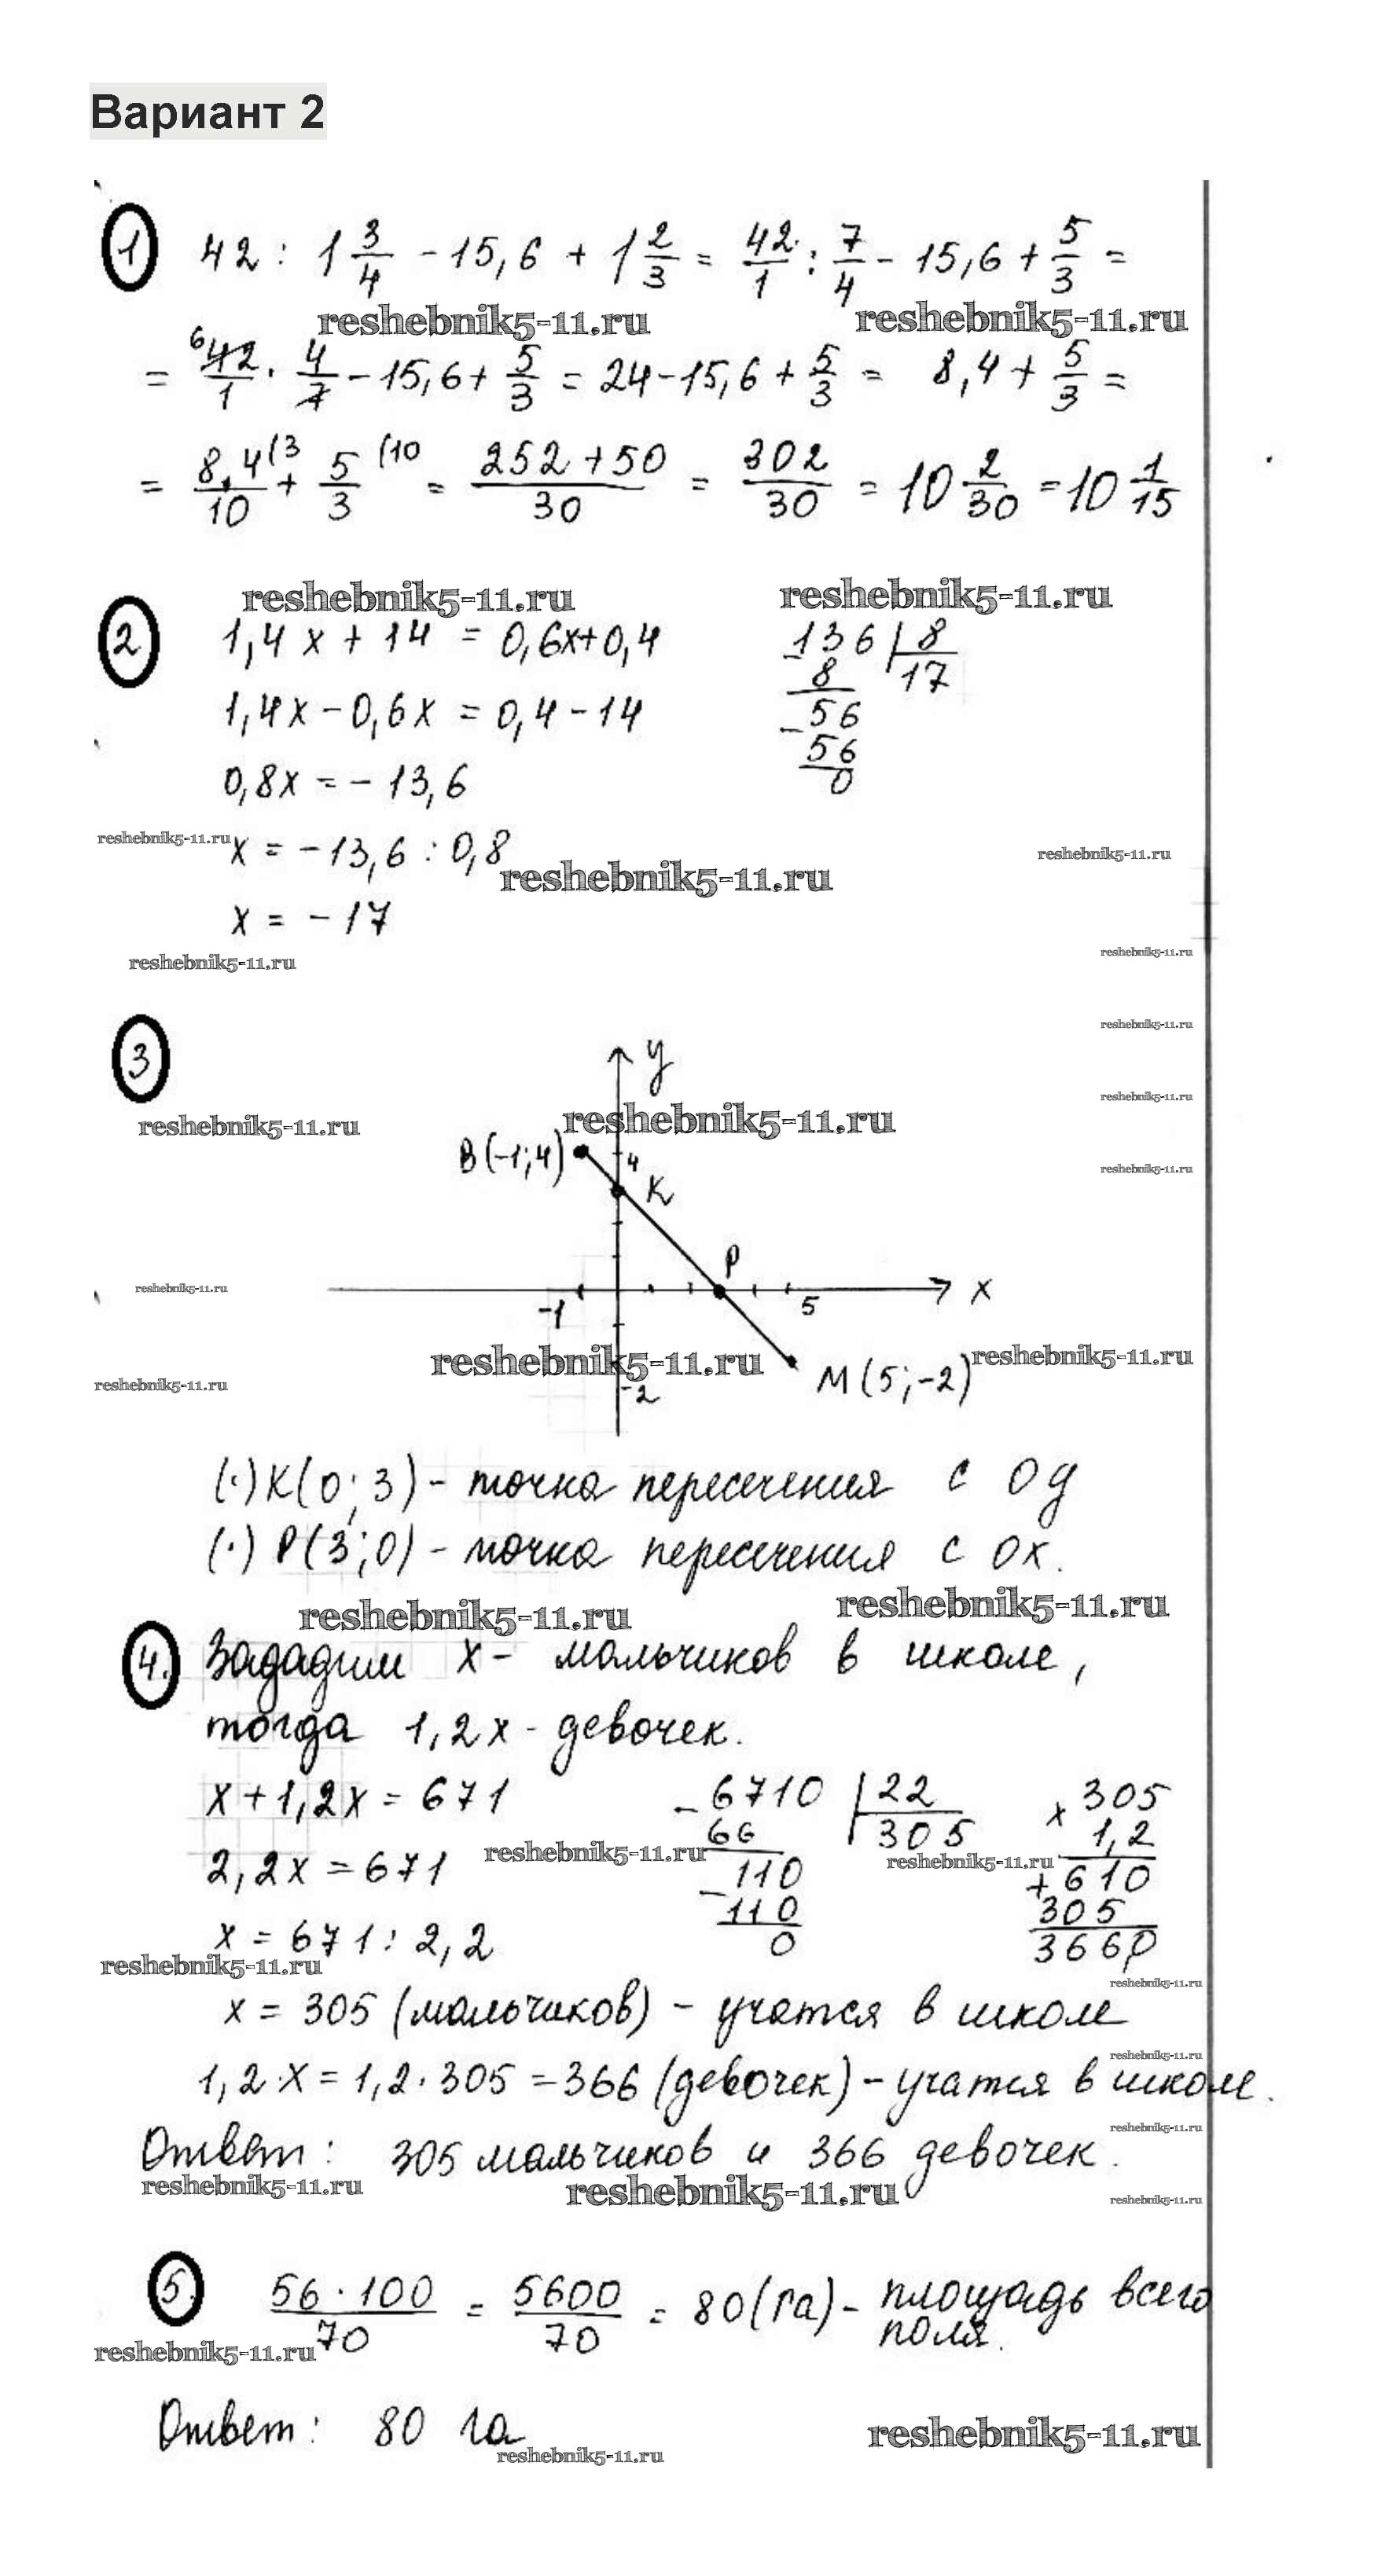 Вариант 2
1 42 : 1 3/4 - 15,6 + 1 2/3 = 42/1 : 7/4 - 15,6 + 5/3 =
reshebnik5-11.ru reshebnik5-11.ru
= 6 42/1 · 4/7 - 15,6 + 5/3 = 24 - 15,6 + 5/3 = 8,4 + 5/3 =
= 8,4 (3/10 + 5/3 (10 = 252 + 50/30 = 302/30 = 10 2/30 = 10 1/15
reshebnik5-11.ru reshebnik5-11.ru
2 1,4x + 14 = 0,6x + 0,4 -136 | 8
8 17
1,4x - 0,6x = 0,4 - 14 -56
56
0,8x = - 13,6 0
reshebnik5-11.ru x = - 13,6 : 0,8 reshebnik5-11.ru
reshebnik5-11.ru
x = - 17
reshebnik5-11.ru reshebnik5-11.ru
reshebnik5-11.ru
3 y
reshebnik5-11.ru
reshebnik5-11.ru reshebnik5-11.ru
B(-1;4) 4
reshebnik5-11.ru
K
P
reshebnik5-11.ru x
-1 5
reshebnik5-11.ru reshebnik5-11.ru
reshebnik5-11.ru -2 M(5;-2)
(·) K(0;3) - точка пересечения с Oy
(·) P(3;0) - точка пересечения с Ox.
reshebnik5-11.ru reshebnik5-11.ru
4. Зададим x - мальчиков в школе,
тогда 1,2x - девочек.
x + 1,2x = 671 -6710 | 22 x 305
66 305 1,2
reshebnik5-11.ru reshebnik5-11.ru
2,2x = 671 -110 + 610
110 305
x = 671 : 2,2 0 3660
reshebnik5-11.ru reshebnik5-11.ru
x = 305 (мальчиков) - учатся в школе
reshebnik5-11.ru
1,2·x = 1,2·305 = 366 (девочек) - учатся в школе.
reshebnik5-11.ru
Ответ: 305 мальчиков и 366 девочек.
reshebnik5-11.ru reshebnik5-11.ru reshebnik5-11.ru
5. 56·100/70 = 5600/70 = 80 (га) - площадь всего
поля.
reshebnik5-11.ru
Ответ: 80 га
reshebnik5-11.ru reshebnik5-11.ru